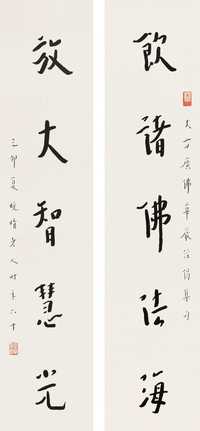 大方廣佛華嚴經偈集句
飲諸佛法海
放大智慧光
己卯夏晚晴老人時年六十